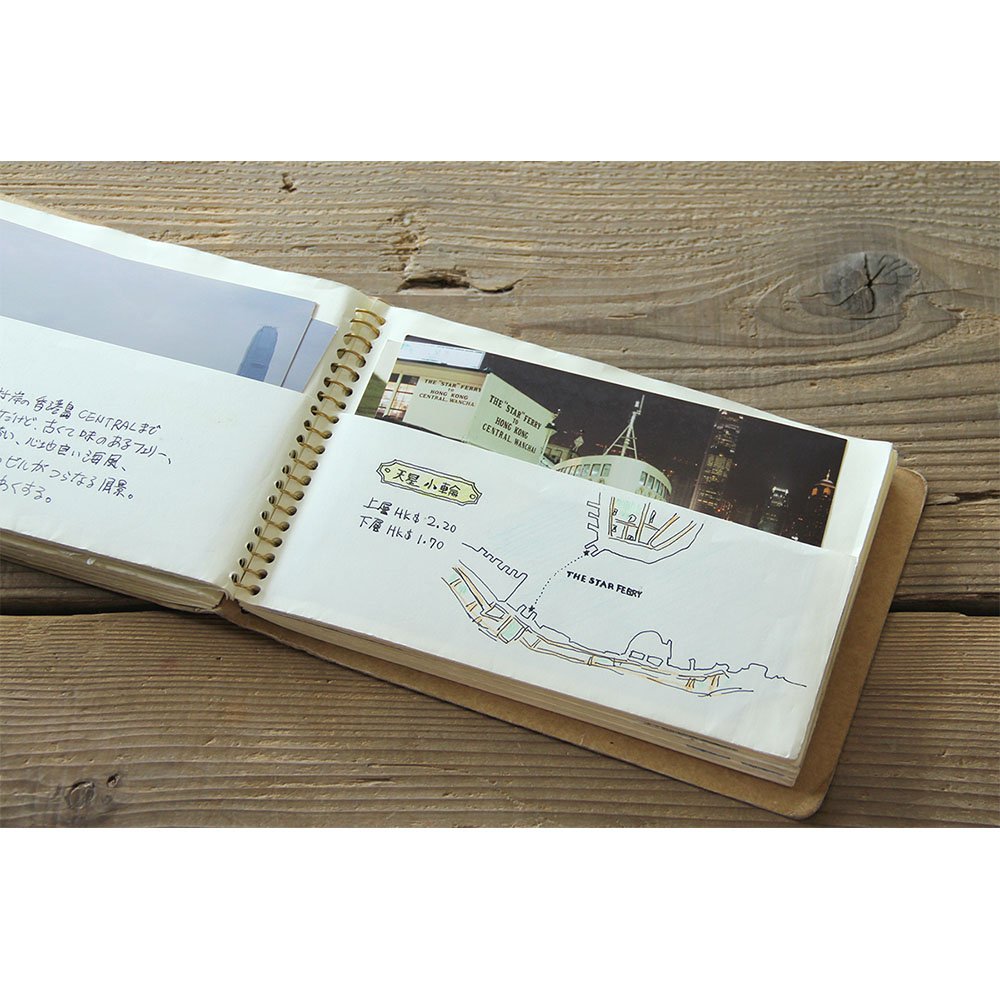 岸の香港島 CENTRALまで
だけど、古くて味のあるフェリー、
い、心地良い海風、
ビルがつらなる風景。
わくする。
THE "STAR" FERRY
TO
HONG KONG
CENTRAL, WANCHAI
THE "STAR" FERRY
TO
HONG KONG
CENTRAL, WANCHAI
天星小輪
上層 HK$ 2.20
下層 HK$ 1.70
THE STAR FERRY